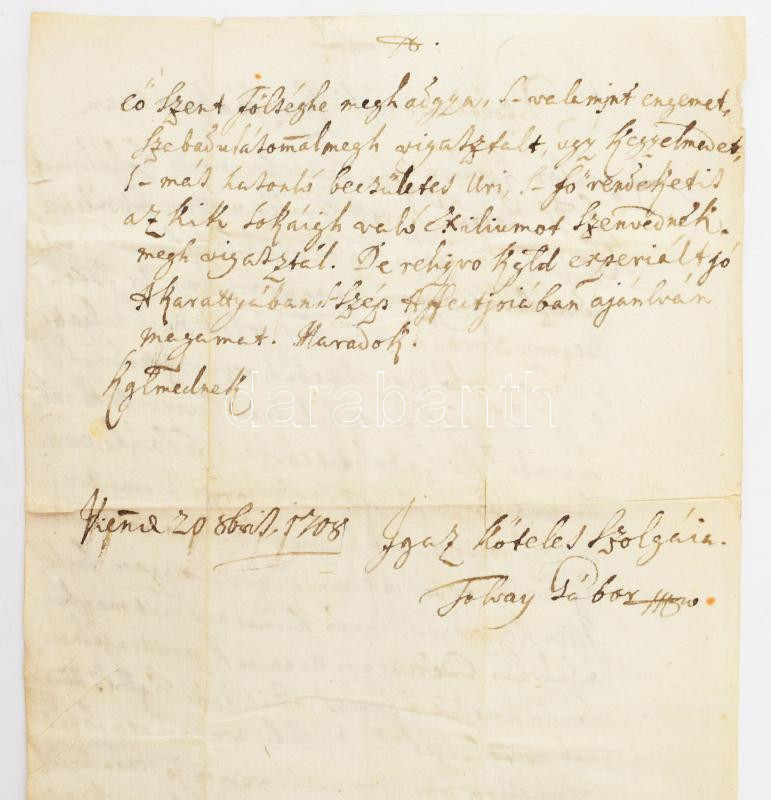 eő Szent Fölséghe megh adgya, s-valamint engemet,
szabadulásom̄al megh vigasztalt, ugy Kegyelmedet,
s-más hasonló beczületes Uri, s-Fő rendeketis
az kik sokáigh való Exiliumot szenvednek.
megh vigasztál. De reliqvo Kgld experiált jó
Akarattyában s-szép Affectjoiában ajánlván
magamat. Maradok.
Kglmednek
darabanth
Vien̄æ 20 8bris. 1708
Igaz köteles Szolgáia.
Tolvay Gábor